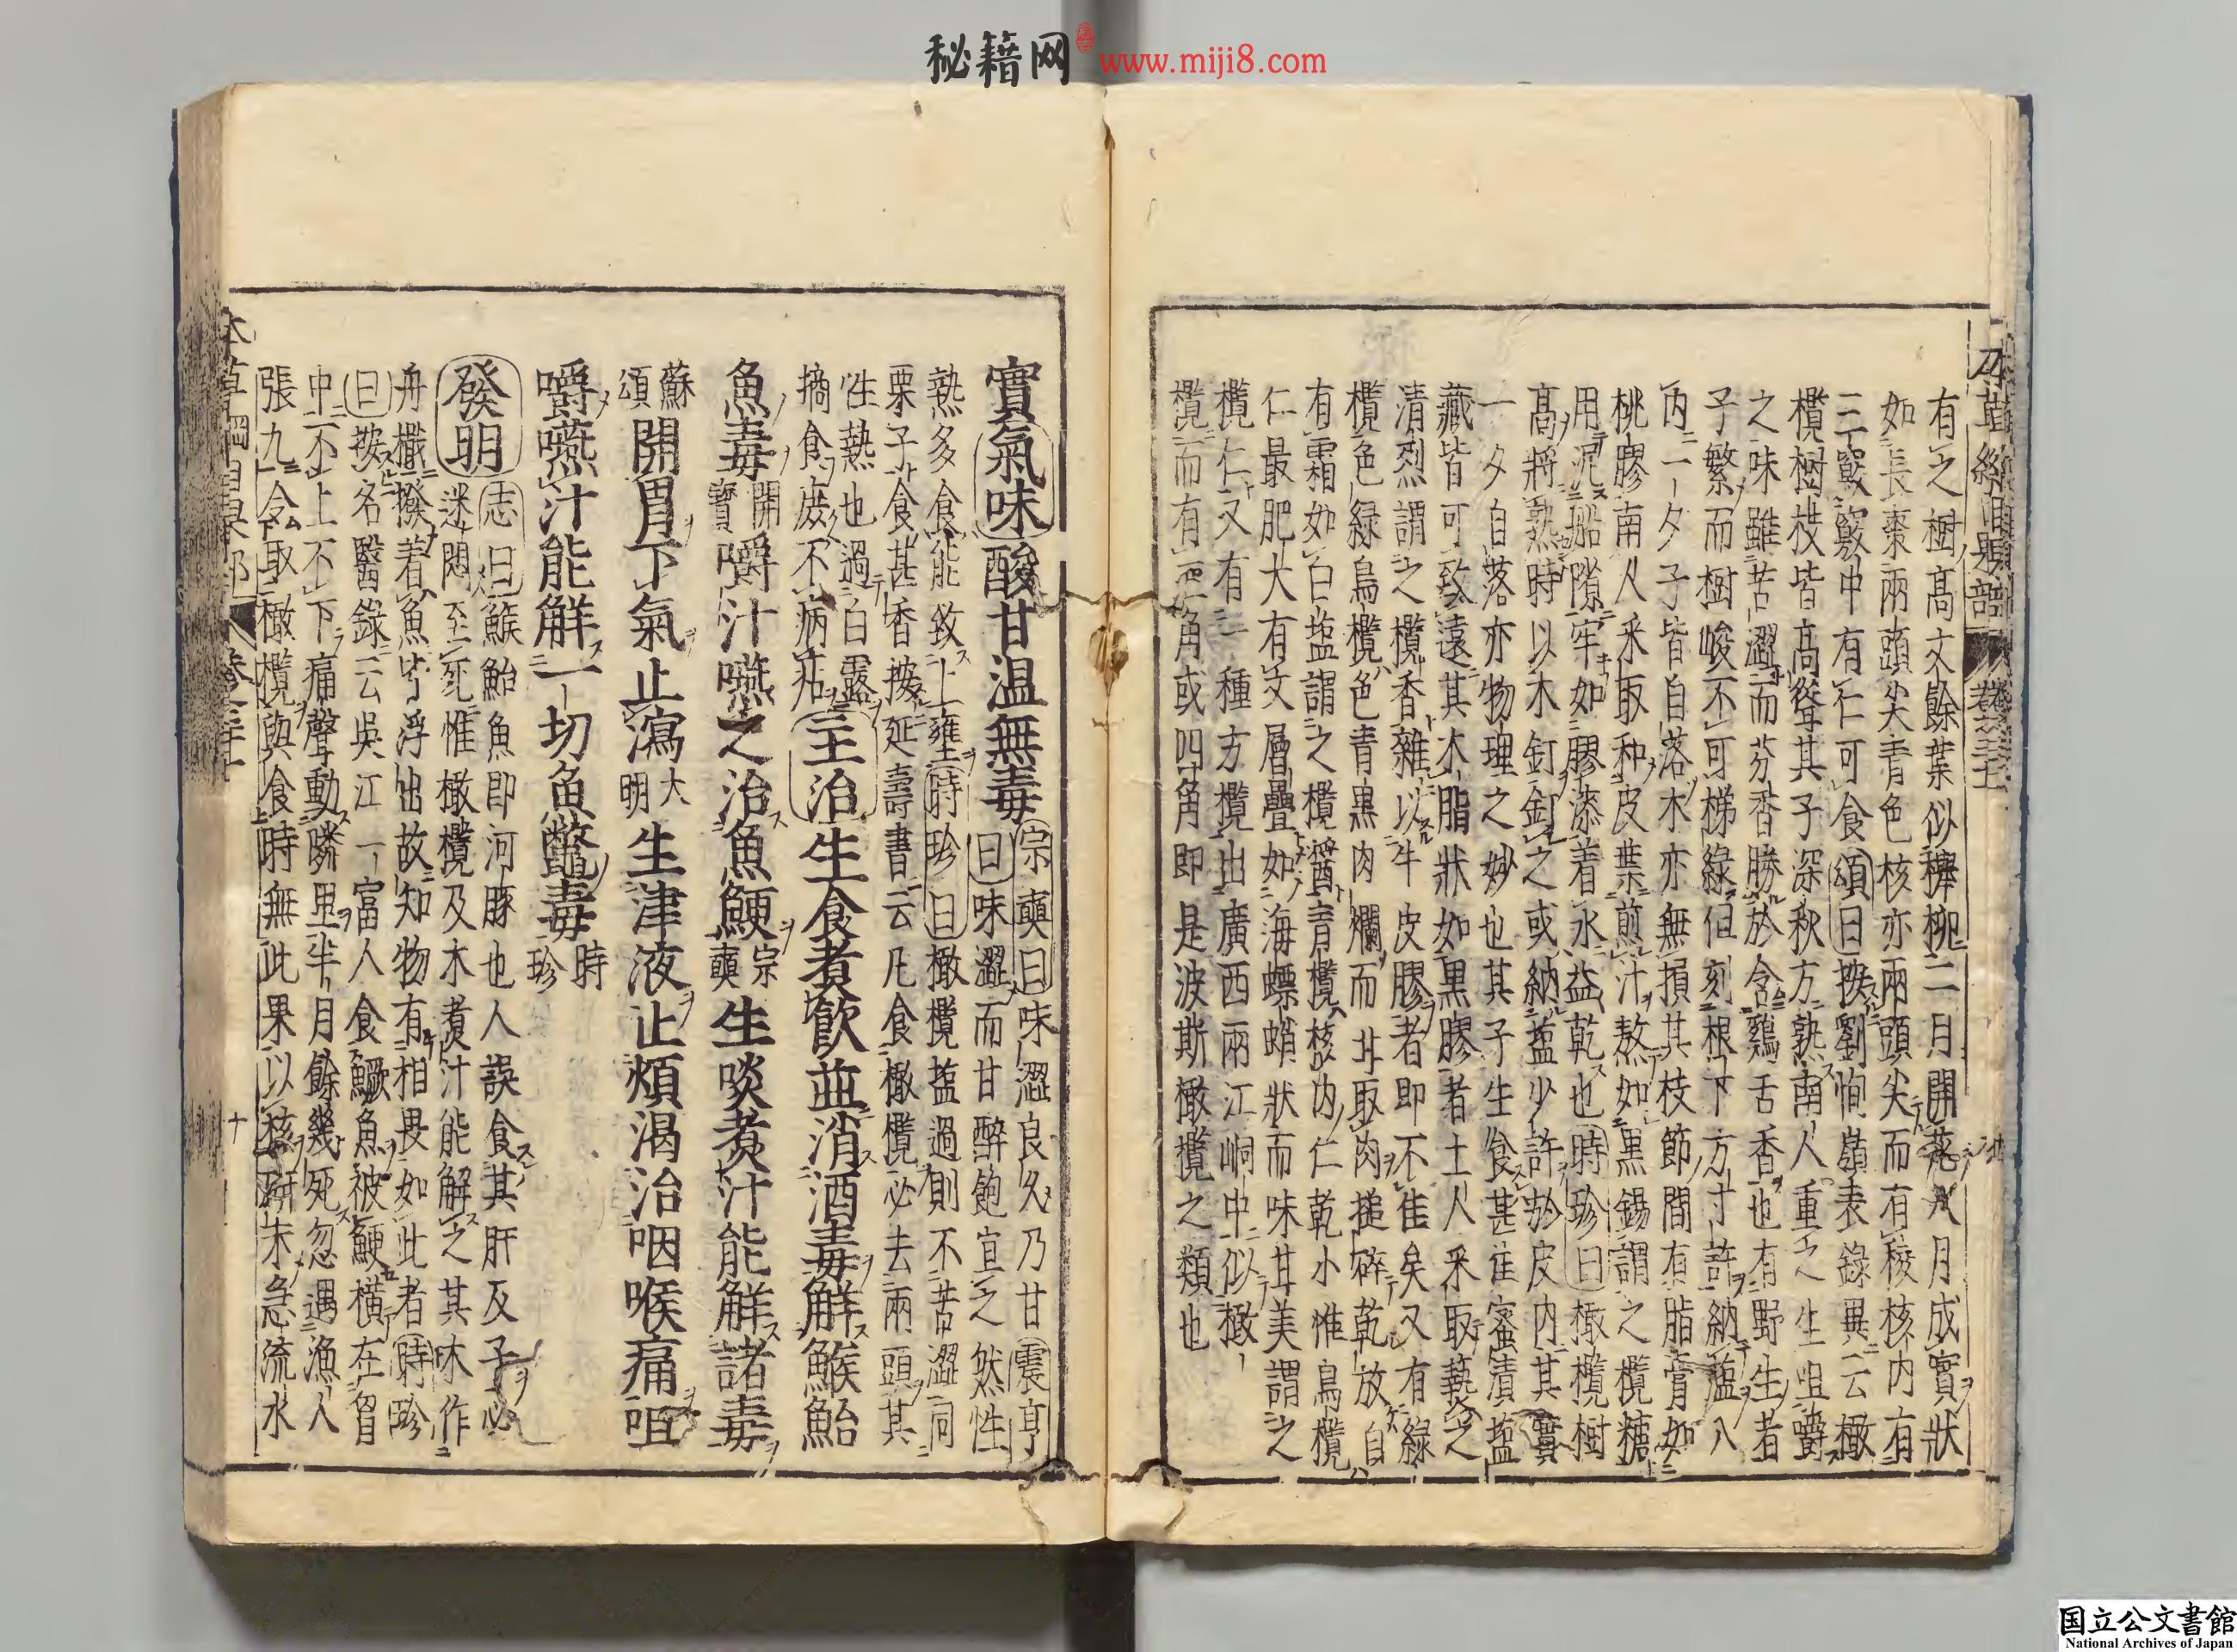 秘籍网 www.miji8.com
有之樹高丈餘葉似櫸柳二月開花八月成實狀
如長棗兩頭尖青色核亦兩頭尖而有稜核內有
三竅竅中有仁可食頌曰按劉恂嶺表錄異云橄
欖樹枝皆高聳其子深秋方熟南人重之生咀嚼
之味雖苦澀而芬香勝於含鷄舌香也有野生者
子繁而樹峻不可梯緣但刻根下方寸許納鹽入
內一夕子皆自落木亦無損其枝節間有脂膏如
桃膠南人釆取和皮葉煎汁熬如黑錫謂之欖糖
用泥船隙牢如膠漆着水益乾也時珍曰橄欖樹
高將熟時以木釘釘之或納盬少許於皮內其實
一夕自落亦物理之妙也其子生食甚佳蜜漬盬
藏皆可致遠其木脂狀如黑膠者土人釆取爇之
清烈謂之欖香雜以牛皮膠者即不佳矣又有綠
欖色綠烏欖色青黑肉爛而甘取肉搥碎乾放自
有霜如白盬謂之欖醬青欖核內仁乾小惟烏欖
仁最肥大有文層疊如海螵蛸狀而味甘美謂之
欖仁又有一種方欖出廣西兩江峒中似橄
欖而有三角或四角即是波斯橄欖之類也
實氣味酸甘温無毒宗奭曰味澀良久乃甘震亨
曰味澀而甘醉飽宜之然性
熱多食能致上壅時珍曰橄欖盬過則不苦澀同
栗子食甚香按延壽書云凡食橄欖必去兩頭其
性熱也過白露
摘食庻不病痁主治生食煮飲並消酒毒解鯸鮐
魚毒開寶嚼汁嚥之治魚鯁宗奭生啖煮汁能解諸毒
蘇頌開胃下氣止瀉大明生津液止煩渴治咽喉痛咀
嚼嚥汁能解一切魚鼈毒時珍
發明志曰鯸鮐魚即河豚也人誤食其肝及子必
迷悶至死惟橄欖及木煮汁能解之其木作
舟檝撥着魚皆浮出故知物有相畏如此者時珍
曰按名醫錄云吳江一富人食鱖魚被鯁橫在胷
中不上不下痛聲動隣里半月餘幾死忽遇漁人
張九令取橄欖與食時無此果以核研末急流水
十
国立公文書館
National Archives of Japan